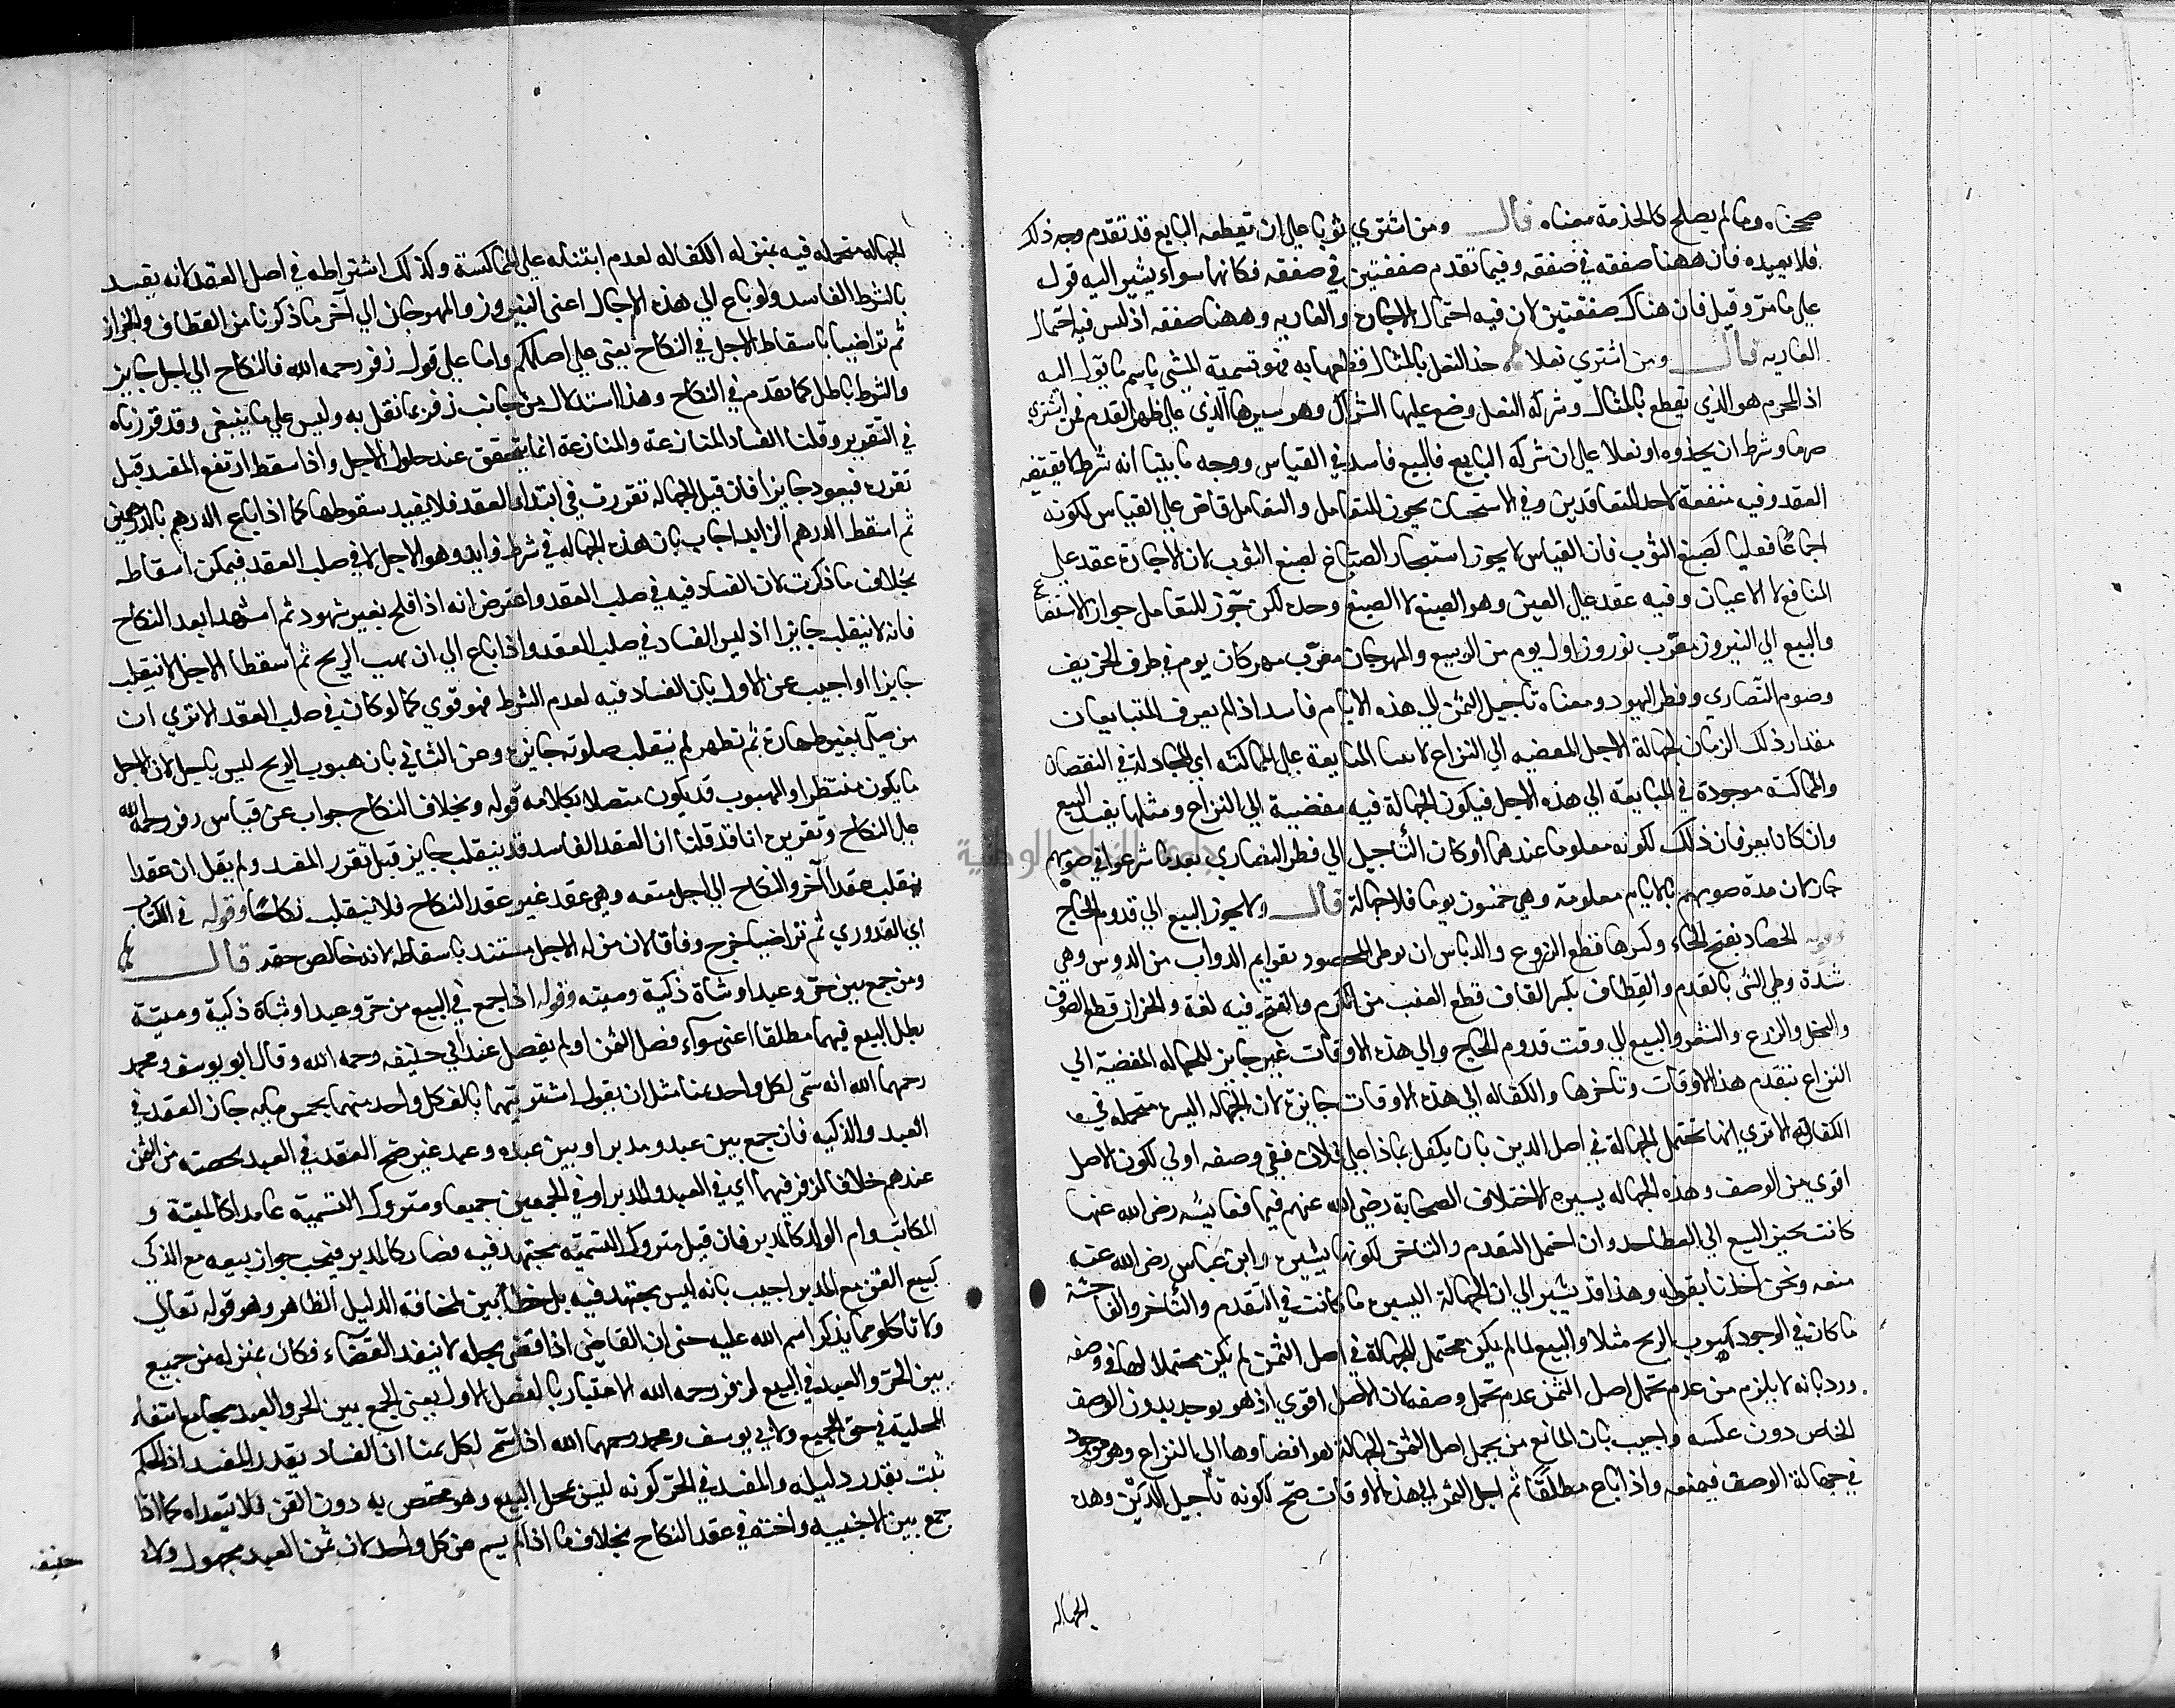 صححناه وما لم يصلح كالخدمة منعناه قال ومن اشتري ثوبا علي ان يقطعه البايع قد تقدم وجه ذلك
فلا نعيده فان ههنا صفقه في صفقه وفيما تقدم صفقتين في صفقه فكانها سواء يشير اليه قول
علي ما مر وقيل فان هناك صفقتين لان فيه احتمال الاجارة والعاريه وههنا صفقه اذ ليس فيه احتمال
العاريه قال ومن اشتري نعلا حذا النعل بالمثال قطعها به فهو تسمية الشئ باسم ما يؤل اليه
اذ المحرم هو الذي يقطع بالمثال وشركه النعل وضع عليها الشراك وهو سيرها الذي علي ظهر القدم فمن اشتري
صرما وشرط ان يحذوه او نعلا علي ان شركه البايع فالبيع فاسد في القياس ووجه ما بينا انه شرط لا يقتضيه
العقد وفيه منفعة لاحد المتعاقدين وفي الاستحسان يجوز للتعامل والتعامل قاض علي القياس لكونه
اجماعًا فعليا كصبغ الثوب فان القياس لا يجوز استيجار الصباغ لصبغ الثوب لان الاجارة عقد علي
المنافع لا الاعيان وفيه عقد علي العين وهو الصبغ لا الصبغ وحده لكن جوز للتعامل جواز الاستصناع
والبيع الي النيروز معرّب نوروز اول يوم من الربيع والمهرجان معرّب مهركان يوم في طرف الخريف
وصوم النصاري وفطر اليهود ومعناه تأجيل الثمن الي هذه الايام فاسد اذا لم يعرف المتبايعان
مقدار ذلك الزمان لجهالة الاجل المفضيه الي النزاع لابتناء المبايعة علي المماكسه اي المجادلة في النقصان
والمماكسة موجودة في المبايعة الي هذه الاجل فيكون الجهالة فيه مفضية الي النزاع ومثلها يفسد البيع
وان كانا يعرفان ذلك لكونه معلوما عندهما او كان التأجيل الي فطر النصاري بعد ما شرعوا في صومهم
جاز لان مدة صومهم بالايام معلومة وهي خمسون يوما فلا جهالة قال ولا يجوز البيع الي قدوم الحاج
الحصاد بفتح الحاء وكسرها قطع الزروع والدياس ان يوطي المحصود بقوايم الدواب من الدوس وهي
شدة وطي الشئ بالقدم والقطاف بكسر القاف قطع العنب من الكرم والفتح فيه لغة والجزاز قطع الصوف
والنخل والزرع والشعر والبيع الي وقت قدوم الحاج والي هذه الاوقات غير جايز للجهاله المفضية الي
النزاع بتقدم هذه الاوقات وتاخرها والكفاله الي هذه الاوقات جايزة لان الجهاله اليسره متحمله في
الكفاله الا تري انها تحتمل الجهالة في اصل الدين بان يكفل بماذا علي فلان ففي وصفه اولي لكون الاصل
اقوي من الوصف وهذه الجهاله يسيرة لاختلاف الصحابة رضي الله عنهم فيها فعايشه رضي الله عنها
كانت تجيز البيع الي العطا وان احتمل التقدم والتاخر لكونها يسيره وابن عباس رضي الله عنه
منعه ونحن اخذنا بقوله وهذا قد يشير الي ان الجهالة اليسيره ما كانت في التقدم والتأخر والفاحشة
ما كان في الوجود كهبوب الريح مثلا والبيع لما لم يكن محتمل الجهالة في اصل الثمن لم يكن محتملا لها في وصفه
ورد بانه لا يلزم من عدم تحمل اصل الثمن عدم تحمل وصفه لان الاصل اقوي اذ هو يوجد بدون الوصف
الخاص دون عكسه واجيب بان المانع من تحمل اصل الثمن الجهالة هو افضاوها الي النزاع وهو موجود
في جهالة الوصف فيمنعه واذا باع مطلقا ثم اجل الثمن الي هذه الاوقات صح لكونه تأجيل الدَين وهذه
الجهاله
الجهاله متحمله فيه بمنزله الكفاله لعدم ابتنائه علي المماكسة وكذلك اشتراطه في اصل العقد لانه يفسد
بالشرط الفاسد ولو باع الي هذه الاجال اعني النيروز والمهرجان الي آخر ما ذكرنا من القطاف والجزاز
ثم تراضيا باسقاط الاجل في النكاح يعني علي اصلكم واما علي قول زفر رحمه الله فالنكاح الي اجل جايز
والشرط باطل كما تقدم في النكاح وهذا استدلال من جانب زفر بما نقل به وليس علي ما ينبغي وقد قررناه
في التقرير وقلنا الفساد المنازعة والمنازعة انما يتحقق عند حلول الاجل واذا سقط ارتفع المفسد قبل
تقرره فيعود جايزا فان قيل الجهالة تقررت في ابتداء العقد فلا يفيد سقوطها كما اذا باع الدرهم بالدرهمين
ثم اسقط الدرهم الزايد اجاب بان هذه الجهاله في شرط زايد وهو الاجل لا في صلب العقد فيمكن اسقاطه
بخلاف ما ذكرت لان الفساد فيه في صلب العقد واعترض انه اذا نكح بغير شهود ثم اشهدا بعد النكاح
فانه لا ينقلب جايزا اذ ليس الفساد في صلب العقد واذا باع الي ان يهب الريح ثم اسقطا الاجل لا ينقلب
جايزا واجيب عن الاول بان الفساد فيه لعدم الشرط فهو قوي كما لو كان في صلب العقد الا تري ان
من صلّي بغير طهارة ثم تطهر لم ينقلب صلوته جايزه وعن الثاني بان هبوب الريح ليس باجل لان الاجل
ما يكون منتظرا والهبوب قد يكون متصلا بكلامه قوله وبخلاف النكاح جواب عن قياس زفر رحمه الله
علي النكاح وتقريره انا قد قلنا ان العقد الفاسد قد ينقلب جايز قبل تقرر المفسد ولم يقل ان عقدا
ينقلب عقدا آخر والنكاح الي اجل متعه وهي عقد غير عقد النكاح فلا ينقلب نكاحًا وقوله في الكتاب
اي القدوري ثم تراضيا خرج وفاقا لان من له الاجل مستبد باسقاطه لانه خالص حقه قال
ومن جمع بين حرّ وعبد او شاة ذكية وميته وقوله اذا جمع في البيع من حرّ وعبد او شاة ذكية وميتة
بطل البيع فيهما مطلقا اعني سواء فصل الثمن او لم يفصل عند ابي حنيفه رحمه الله وقال ابو يوسف ومحمد
رحمهما الله انه سمّي لكل واحد ثمنا مثل ان يقول اشتريتهما بالف كل واحد منهما بخمس مايه جاز العقد في
العبد والذكيه فان جمع بين عبد ومدبر او بين عبده وعبد غيره صح العقد في العبد بحصته من الثمن
عندهم خلافا لزفر فيهما اي في العبد والمدبر او في الجمعين جميعا ومتروك التسميه عامدا كالميتة و
المكاتب وام الولد كالمدبر فان قيل متروك التسميه مجتهد فيه فصار كالمدبر فيجب جواز بيعه مع الذكي
كبيع القن مع المدبر اجيب بانه ليس بمجتهد فيه بل خطأ بين لمخالفة الدليل الظاهر وهو قوله تعالي
ولا تاكلوا مما لم يذكر اسم الله عليه حتي ان القاضي اذا قضي بحله لا ينفذ القضاء فكان بمنزله من جمع
بين الحرّ والعبد في البيع لزفر رحمه الله الاعتبار بالفصل الاول يعني الجمع بين الحر والعبد بجامع انتفاء
المحلية في حق الجميع ولابي يوسف ومحمد رحمهما الله اذا سمّي لكل ثمنا ان الفساد بقدر المفسد اذ الحكم
ثبت بقدر دليله والمفسد في الحرّ كونه ليس بمحل البيع وهو مختص به دون القن فلا يتعداه كما اذا
جمع بين الاجنبيه واخته في عقد النكاح بخلاف ما اذا لم يسم ثمن كل واحد لان ثمن العبد مجهول ولابي
حنيفه